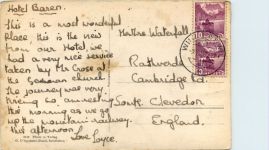 Hotel Bären.
This is a most wonderful
place this is the view
from our Hotel, we
had a very nice service
taken by Mr Crose at
the German church
the journey was very
tiring so, am resting
this morning as we go
up the mountain railway
this afternoon
Love Joyce.
Waterfall
Rathwerda
Cambridge Rd.
South Clevedon
England.
10
10